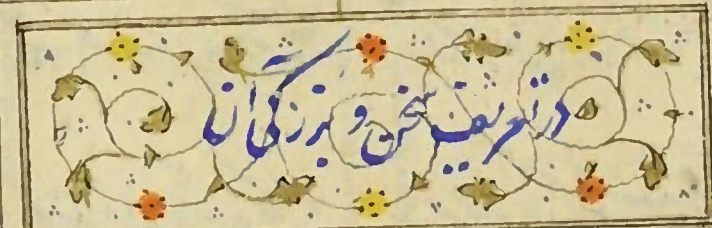 در تعریف سخن و بزرگی آن